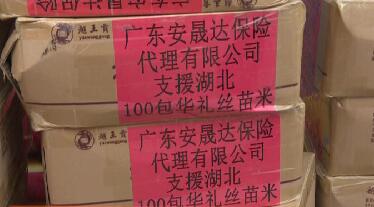 广东安晟达保险
越王贡
广东安晟达保险
代理有限公司
支援湖北
100包华礼丝苗米
越王贡
广东安晟达保险
代理有限公司
支援湖北
100包华礼丝苗米